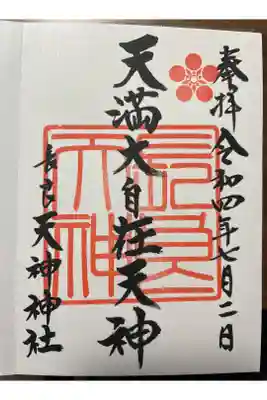 奉拝 令和四年七月二日
天満大自在天神
長良天神神社
長良天神